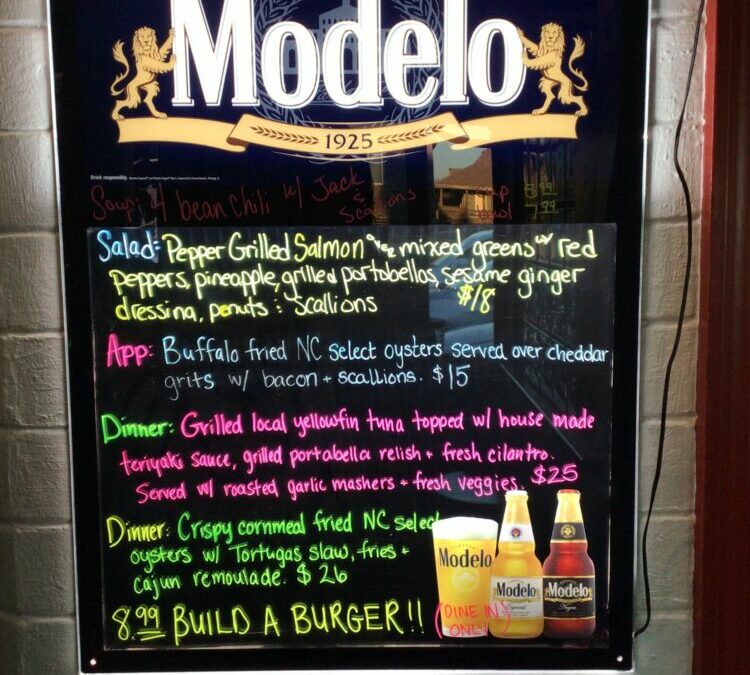 Modelo
1925
Drink responsibly.
Soup: 4 bean chili w/ Jack & Scallions
cup 5.99
bowl 7.99
Salad: Pepper Grilled Salmon over mixed greens w/ red
peppers, pineapple, grilled portabellos, sesame ginger
dressing, penuts : scallions $18
App: Buffalo fried NC select oysters served over cheddar
grits w/ bacon + scallions. $15
Dinner: Grilled local yellowfin tuna topped w/ house made
teriyaki sauce, grilled portabella relish + fresh cilantro.
Served w/ roasted garlic mashers + fresh veggies. $25
Dinner: Crispy cornmeal fried NC select
oysters w/ Tortugas slaw, fries +
cajun remoulade. $26
8.99 BUILD A BURGER!! (DINE IN
ONLY)
Modelo
Modelo
Especial
Modelo
Negra